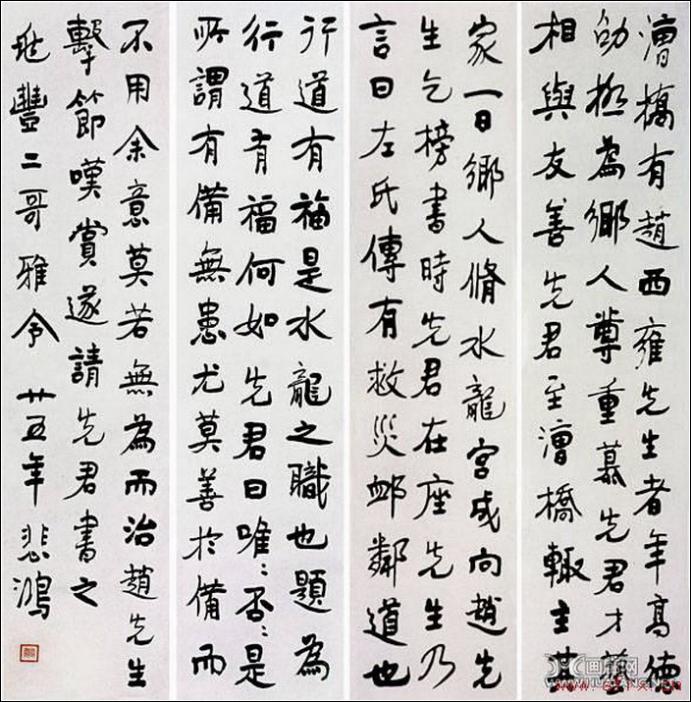 漕橋有趙西雍先生者年高德
劭極為鄉人尊重慕先君才藝
相與友善先君至漕橋輒主其
家一日鄉人脩水龍宮成向趙先
生乞榜書時先君在座先生乃
言曰左氏傳有救災卹鄰道也
行道有福是水龍之職也題為
行道有福何如先君曰唯:否:是
所謂有備無患尤莫善於備而
不用余意莫若無為而治趙先生
擊節嘆賞遂請先君書之
兆豐二哥雅令 廿五年 悲鴻